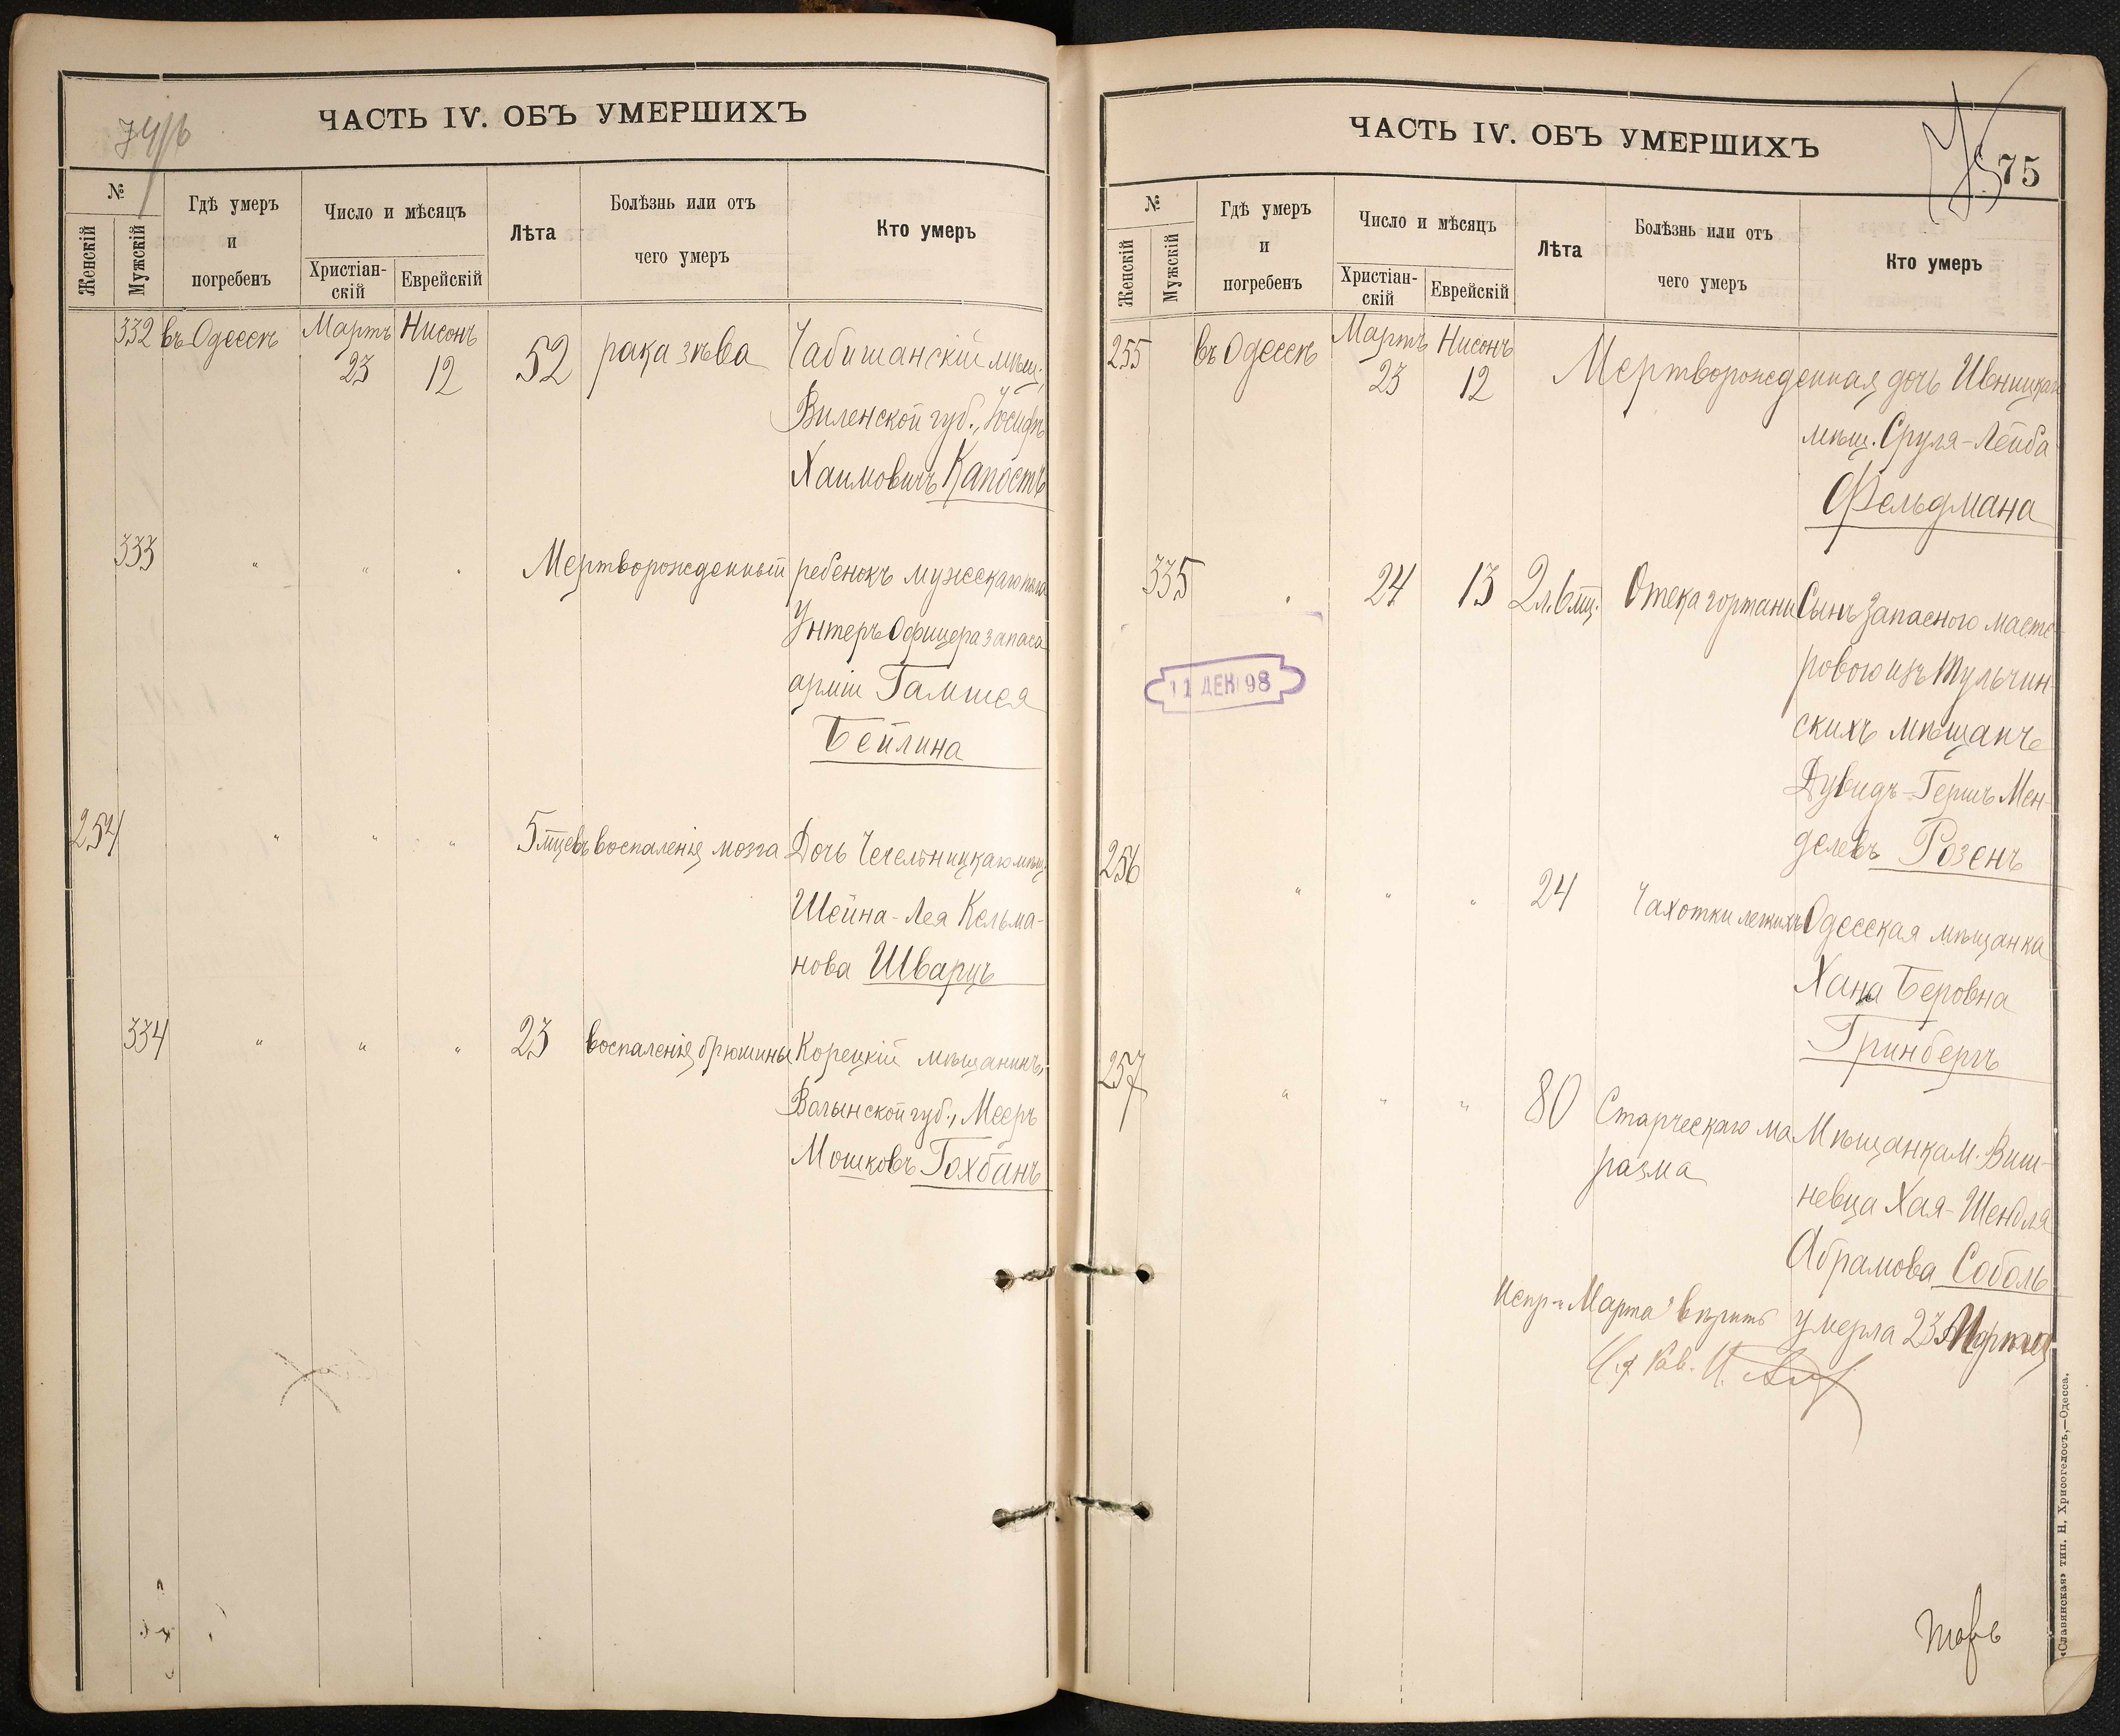 74/б
ЧАСТЬ IV. ОБЪ УМЕРШИХЪ
№
Женскій
Мужскій
Гдѣ умеръ
и
погребенъ
Число и мѣсяцъ
Христіан-
скій
Еврейскій
Лѣта
Болѣзнь или отъ
чего умеръ
Кто умеръ
332 въ Одессѣ Мартъ 23 Нисонъ 12 52 рака зѣва Чабишанскій мѣщ.,
Виленской губ., Іосифъ
Хаимовичъ Капостъ
333 " " " Мертворожденный ребенокъ мужескаго пола
Унтеръ Офицера запаса
арміи Гамшея
Бейлина
254 " " " 5 мцевъ воспаленія мозга Дочь Чечельницкаго мѣщ.
Шейна-Лея Кельма-
нова Шварцъ
334 " " " 23 воспаленія брюшины Корецкій мѣщанинъ,
Волынской губ., Мееръ
Мошковъ Гохбанъ
75
ЧАСТЬ IV. ОБЪ УМЕРШИХЪ
75
№
Женскій
Мужскій
Гдѣ умеръ
и
погребенъ
Число и мѣсяцъ
Христіан-
скій
Еврейскій
Лѣта
Болѣзнь или отъ
чего умеръ
Кто умеръ
255 въ Одессѣ Мартъ 23 Нисонъ 12 Мертворожденная дочь Ивницкаго
мѣщ. Сруля-Лейба
Фельдмана
335 " 24 13 2 л. 6 мц. Отека гортани Сынъ запасного масте-
рового изъ Тульчин-
скихъ мѣщанъ
Дувидъ-Гершъ Мен-
делевъ Розенъ
11 ДЕК 98
256 " " " 24 Чахотки легкихъ Одесская мѣщанка
Хана Беровна
Гринбергъ
257 " " " 80 Старческаго ма Мѣщанка м. Виш-
разма невца Хая-Шендля
Абрамова Соболь
умерла 23 Марта
Испр. "Марта" вѣрить
И. д. Рав.
«Славянская» тип. Н. Хрисогелосъ,—Одесса.